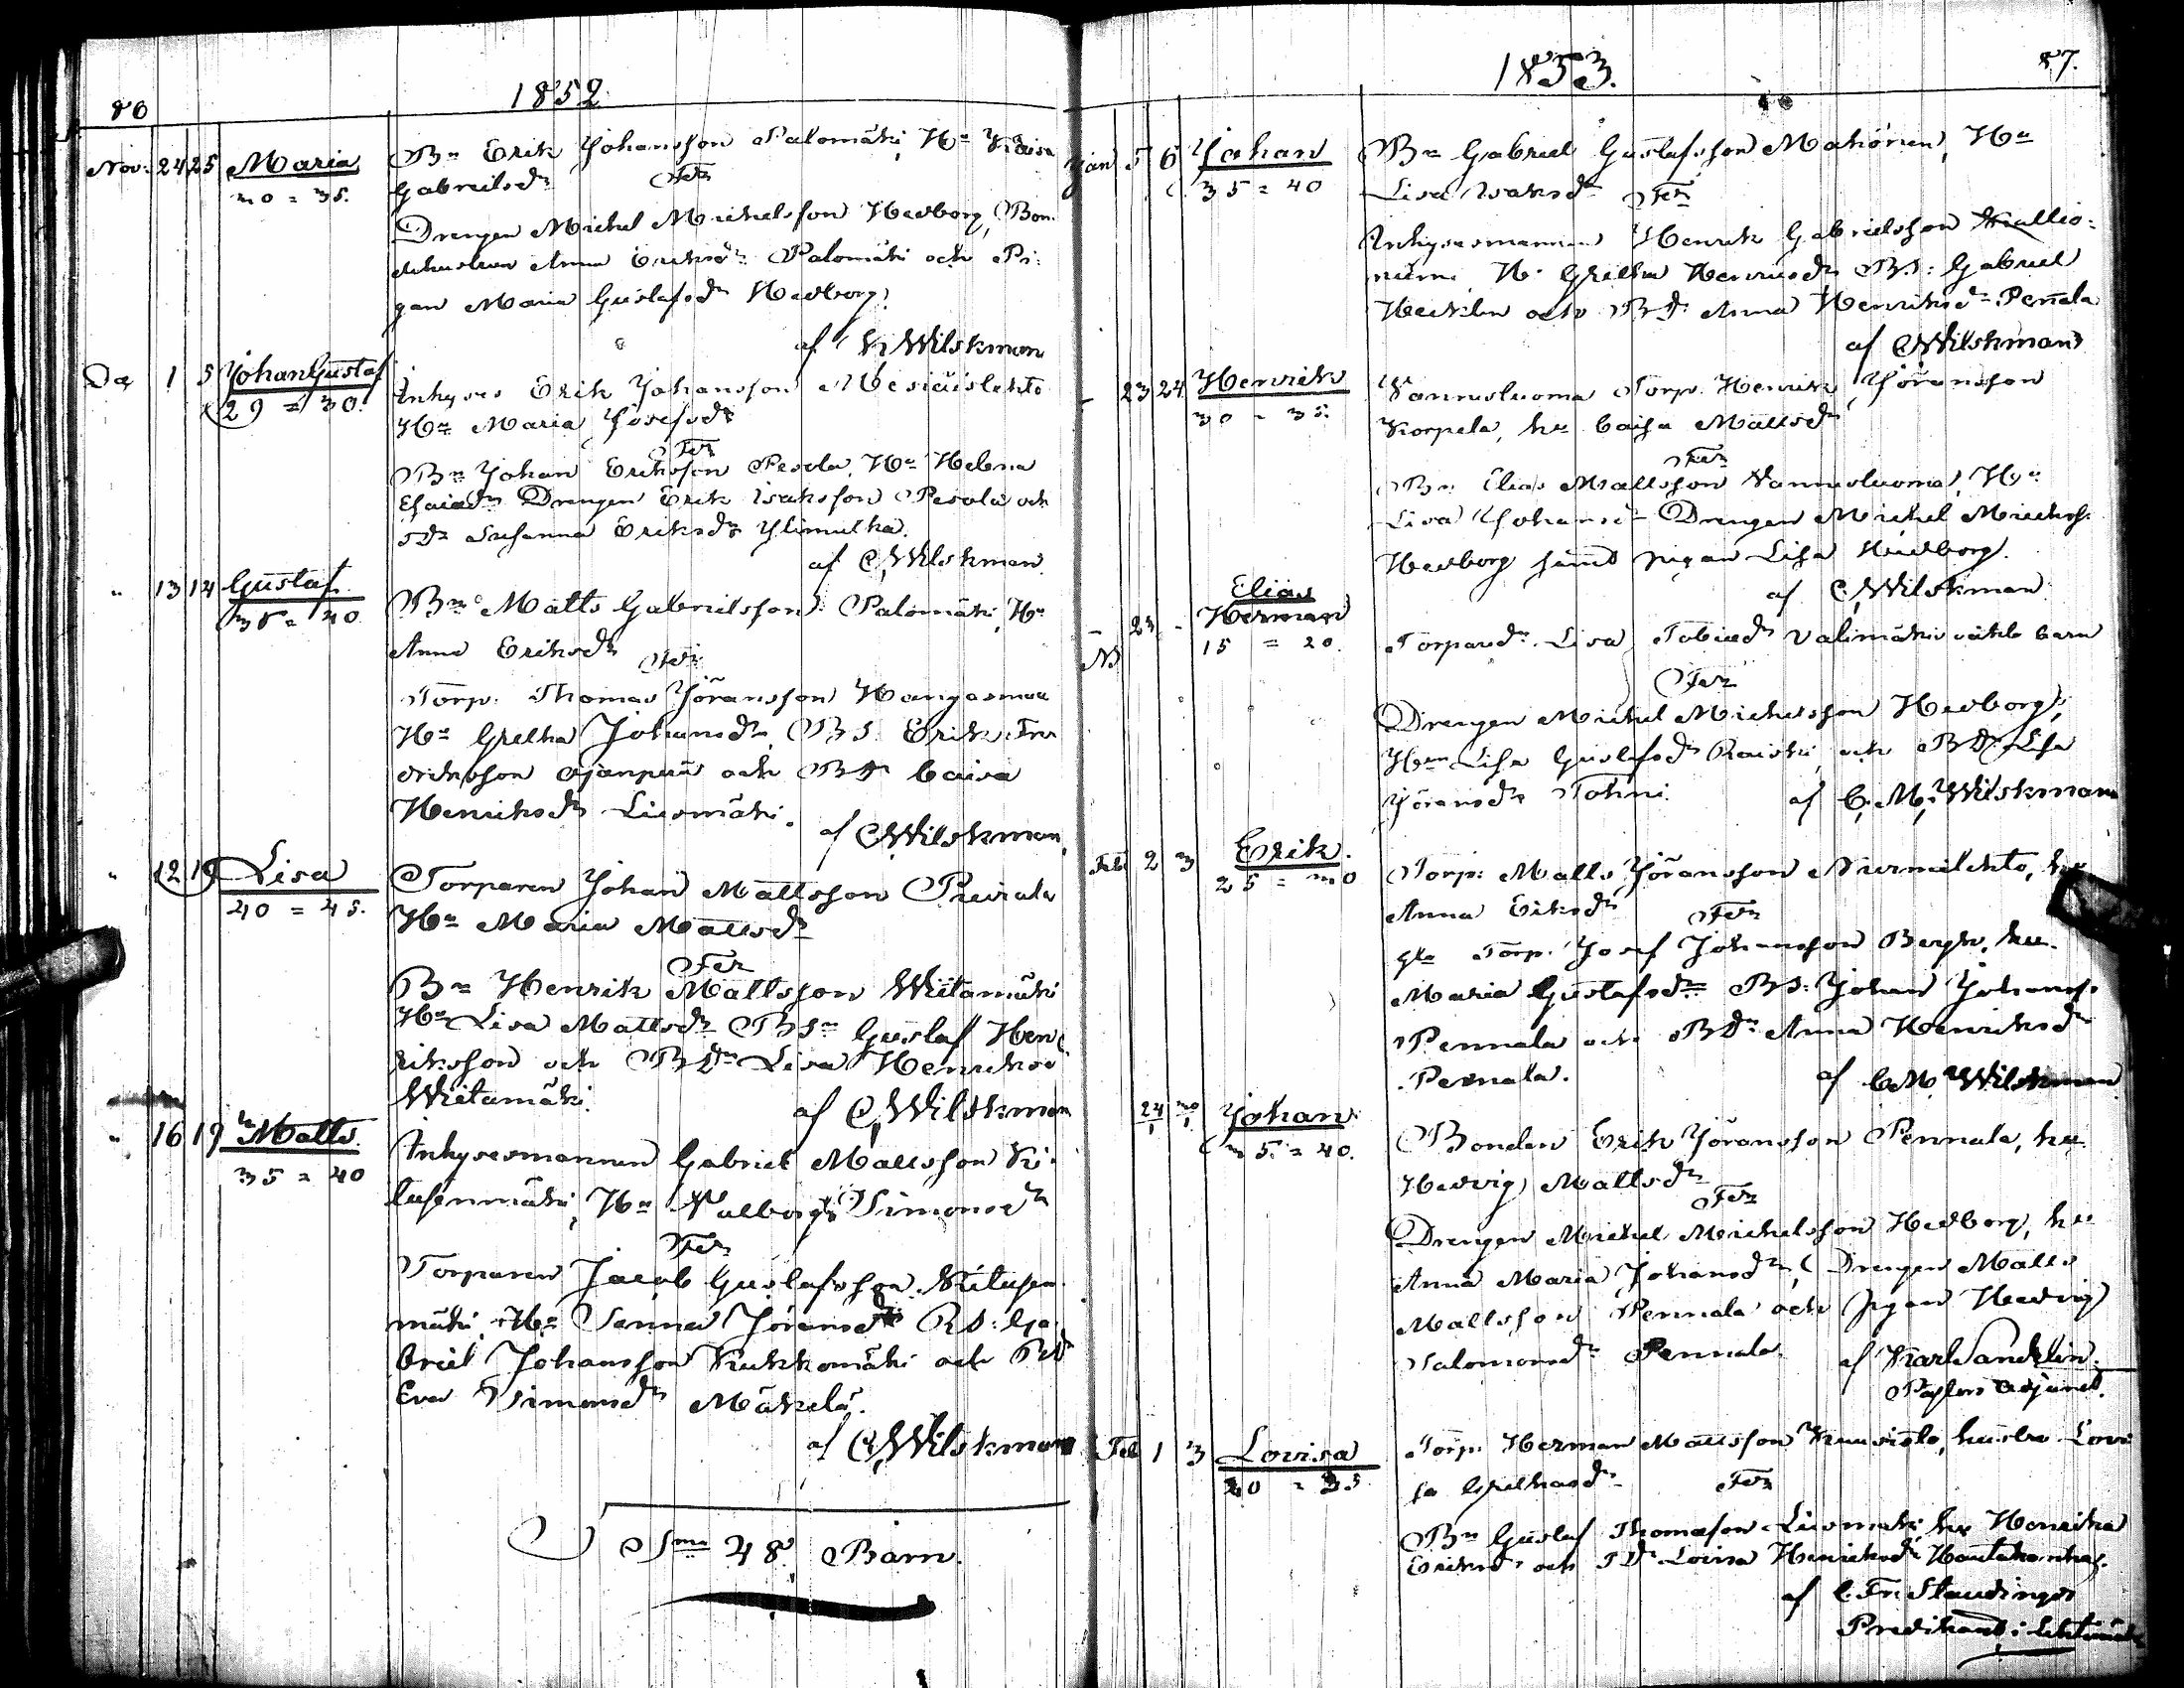 80
1852.
Nov: 24 25 Maria
30 = 35.
Bn Erik Johansson Palomäki, Hu Kaisa
Gabrielsdr
Fdr
Drengen Michel Michelsson Hedborg, Bon-
dehustrun Anna Eriksdr Palomäki och Pi-
gan Maria Gustafsdr Hedborg.
af C, Wilskman
Dec 1 5 Johan Gustaf
29 = 30.
Inhyses Erik Johansson Mesiäislehto
Hu Maria Josefsdr
Fdr
Bn Johan Eriksson Pesola, Hu Helena
Esaiædr Drengen Erik Isaksson Pesola och
Sdr Susanna Eriksdr Ylimulka.
af C, Wilskman.
" 13 14 Gustaf.
35 = 40
Bn Matts Gabrielsson Palomäki, Hu
Anna Eriksdr
Fdr
Torp. Thomas Jöransson Hangasmaa
Hu Gretha Johansdr, BS. Erik Fre-
driksson Ojanperä och BDr Caisa
Henriksdr Liesmäki.
af C, Wilskman,
" 12 19 Lisa
40 = 45.
Torparen Johan Mattsson
Hu Maria Mattsdr
Fdr
Bn Henrik Mattsson Wiitamäki
Hu Lisa Mattsdr BSn Gustaf Hen-
riksson och BDr Lisa Henriksd
Wiitamäki.
af C, Wilskman
" 16 19 Matts.
35 = 40
Inhysesmannen Gabriel Mattsson Ki-
tusenmäki, Hu Valborg Simonsdr
Fdr
Torparen Jacob Gustafsson Kitusen-
mäki, Hu Sanna Jöransdr BS: Ga-
briel Johansson Kukkomäki och BD
Eva Simonsdr Mäkelä.
af C, Wilskman
Sma 48. Barn.
1853.
87.
Jan 5 6 Johan
35 = 40
Bn Gabriel Gustafsson Mahönen, Hu
Lisa Isaksdr
Fdr
Inhysesmannen Henrik Gabrielsson Kallio-
niemi, H. Gretha Henriksdr BS: Gabriel
och BD: Anna Henriksdr Pennala
af C, Wilskman
- 23 24 Henrik
30 - 35.
Vannusluoma Torp. Henrik Jöransson
Korpela, hu Caisa Mattsdr
Fdr
Bn Elias Mattsson Vannusluoma, Hu
Lisa Johansdr Drengen Michel Michelss.
Hedborg samt pigan Lisa Hedborg.
af C, Wilskman
- 23 - Elias
Herman
15 = 20.
Torparedr Lisa Tobiædr Valimäkis oäkta barn
Fdr
Drengen Michel Michelsson Hedborg,
Hun Lisa Gustafsdr Raiski och BDr Lisa
Jöransdr Tohni.
af C. M. Wilskman
Feb 2 3 Erik.
25 = 30
Torp: Matts Jöransson Niemilehto, hu
Anna Eriksdr
Fdr
gla Torp. Josef Johansson Bergh, hu.
Maria Gustafsdr BS: Johan Johanss.
Pennala och BDr Anna Henriksdr
Pennala.
af C. M. Wilskman
24/1 30/1 Johan
35 = 40.
Bonden Erik Jöransson Pennala, hu
Hedvig Mattsdr
Fdr
Drengen Michel Michelsson Hedborg, hu
Anna Maria Johansdr, Drengen Matts
Mattsson Pennala och pigan Hedvig
Salomonsdr Pennala.
af Karl Sandelin.
Pastors Adjunct.
Feb 1 3 Lovisa
30 = 35.
Torp. Herman Mattsson Kuusisto, hustru Lovi
sa
Fdr
Bn Gustaf Thomasson Liesmäki hu Henrika
Eriksdr och TDr Lovisa Henriksdr
af C. Fr. Staudinger
Predikant i Lehtimäki